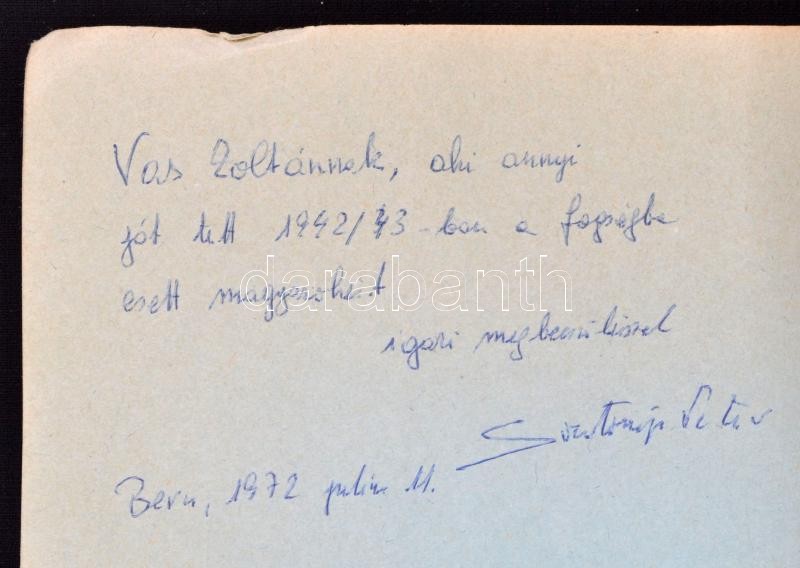 Vas Zoltánnak, aki annyi
jót tett 1942/43-ban a fogságba
esett magyarokért
darabanth
igazi megbecsüléssel
Peter
Bern, 1972 julius 11.